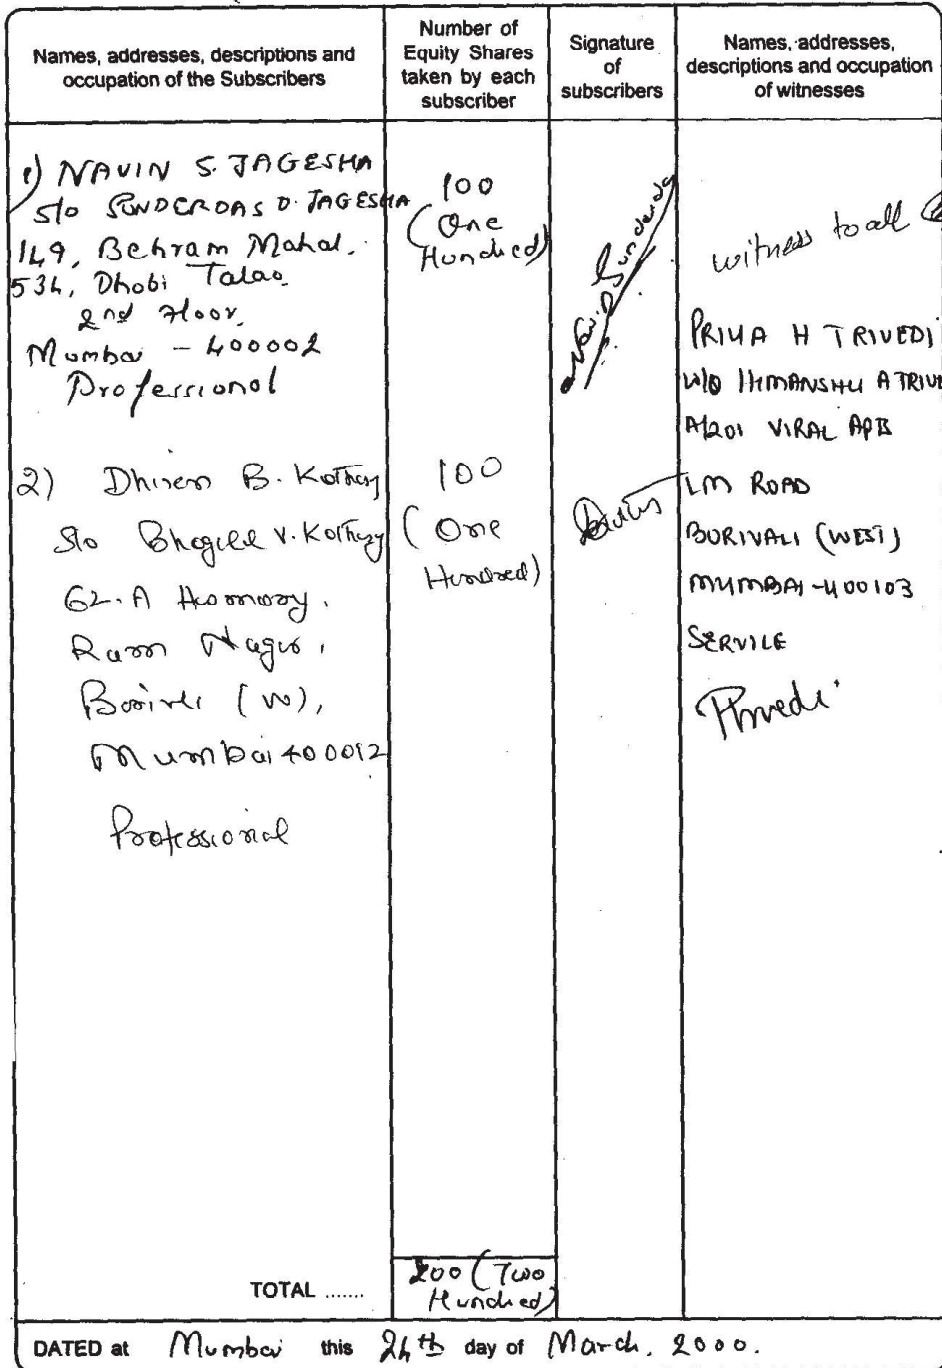 Names, addresses, descriptions and
occupation of the Subscribers
Number of
Equity Shares
taken by each
subscriber
Signature
of
subscribers
Names, addresses,
descriptions and occupation
of witnesses
1) NAVIN S. JAGESHA
S/o SUNDERDAS D. JAGESHA
149, Behram Mahal.
534, Dhobi Talao
2nd Floor,
Mumbai - 400002
Professional
100
(One
Hundred)
Navin Sunderdas
witness to all
PRIYA H TRIVEDI
W/O HIMANSHU A TRIVE
A/201 VIRAL APTS
LM ROAD
BORIVALI (WEST)
MUMBAI-400103
SERVICE
2) Dhiren B. Kothary
S/o V. Kothary
62.A
Ram Nagar,
Borivli (W),
Mumbai 400092
Professional
100
(One
Hundred)
TOTAL .......
200 (Two
Hundred)
DATED at Mumbai this 24th day of March, 2000.